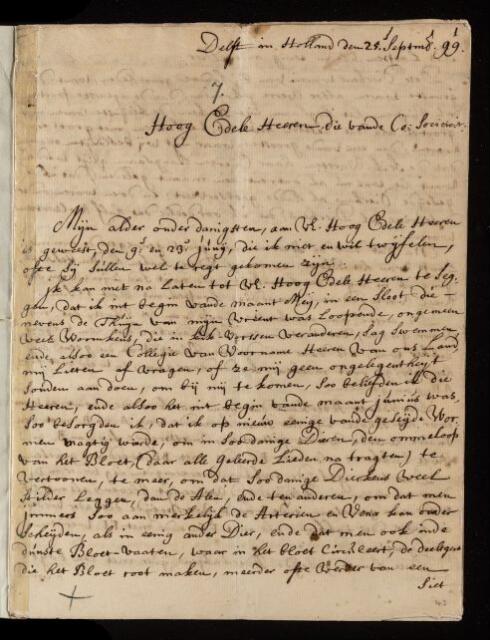 Delft in Holland den 25.e Septmb. 99.
7.
Hoog Edele Heeren, die vande Co: Societeit.
Mijn alder onderdanigsten, aan Ul. Hoog Edele Heeren
is geweest, den 9.e en 23.e junij, die ik niet en wil twijfelen,
ofte sij sullen wel te regt gekomen zijn.
jk kan niet na laten tot Ul. Hoog Edele Heeren te Seg-
gen, dat ik int begin vande maant Meij, in een Sloot die
nevens de Thuijn van mijn was loopende, ongemeen
veel Wormkens, die in kik-vorssen veranderen, Sag Swemmen
ende alsoo een Collegie van Voorname Heeren van ons Land
mij Lieten af vragen, of ze mij geen ongelegentheijt
souden aan doen, om bij mij te komen, Soo beliefden die
Heeren, ende alsoo het int begin vande maant junius was,
Soo besorgden ik, dat ik op nieuw eenige vande geseijde Wor-
men magtig wierde, om in Soodanige Dieren, den ommeloop
van het Bloet, (daar alle Geleerde Lieden na tragten) te
vertoonen, te meer, om dat Soodanige Dierkens veel
stilder Leggen, dan de Alen, ende ten anderen, om dat men
jmmers Soo aan merkelijk de Arterien en Vena kan onder
scheijden, als in eenig ander Dier, ende dat men ook inde
dunste Bloet-vaaten, waar in het bloet Circuleert, de deeltgens
die het Bloet root maken, meerder ofte verder van een
Siet